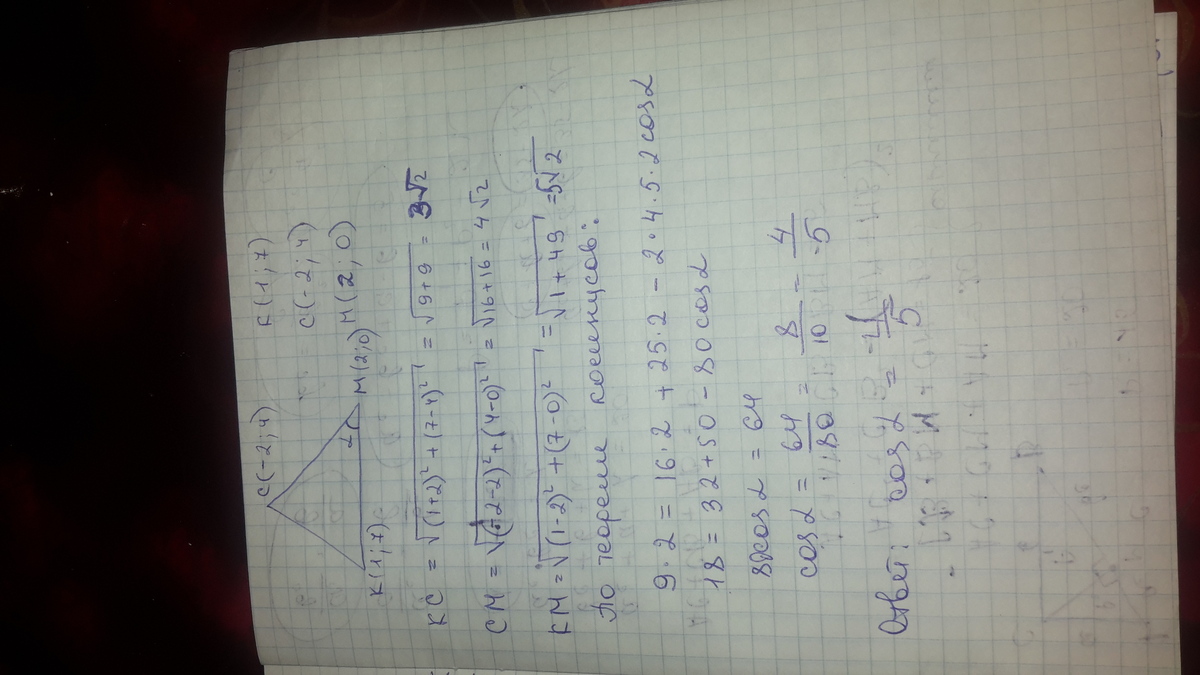 C(-2;4)
K(1;7)
M(2;0)
α
K(1;7)
C(-2;4)
M(2;0)
KC = √(1+2)² + (7-4)² = √9+9 = 3√2
CM = √(-2-2)² + (4-0)² = √16+16 = 4√2
KM = √(1-2)² + (7-0)² = √1+49 = 5√2
По теореме косинусов:
9·2 = 16·2 + 25·2 - 2·4·5·2 cosα
18 = 32+50 - 80 cosα
80cosα = 64
cosα = 64/80 = 8/10 = 4/5
Ответ: cosα = 4/5